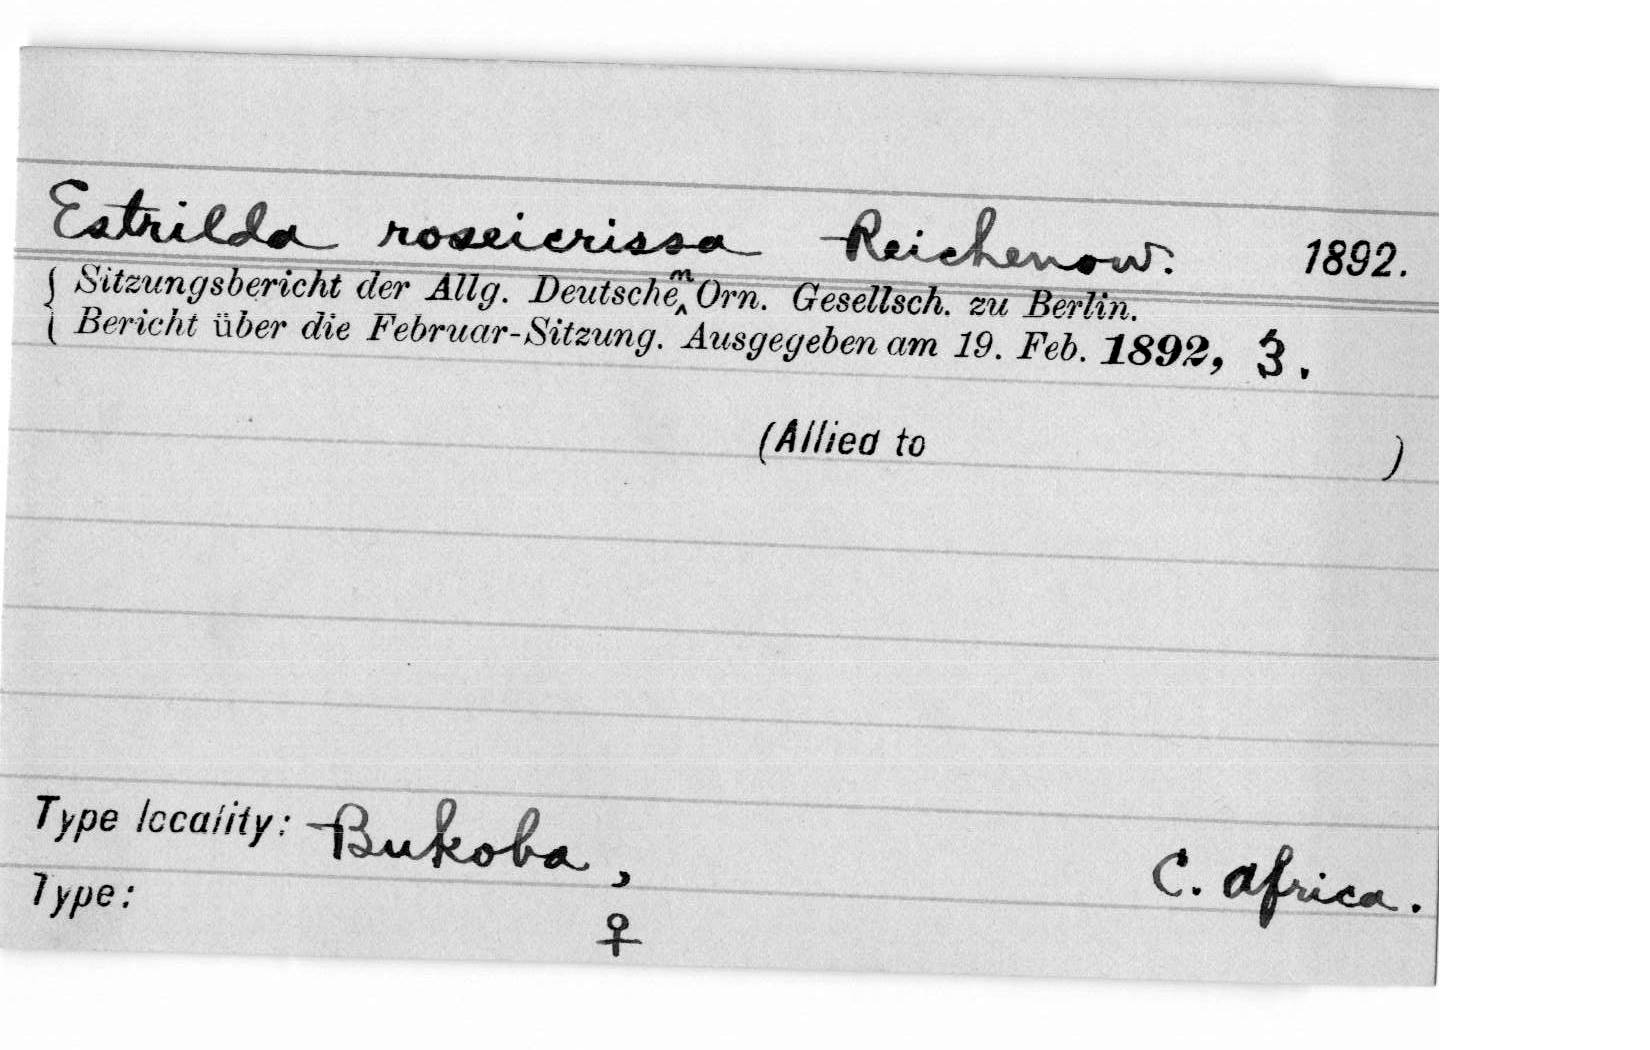 Estrilda roseicrissa Reichenow. 1892.
{ Sitzungsbericht der Allg. Deutsche^n Orn. Gesellsch. zu Berlin.
{ Bericht über die Februar-Sitzung. Ausgegeben am 19. Feb. 1892, 3.
(Allied to )
Type locality: Bukoba, C. Africa.
Type: ♀